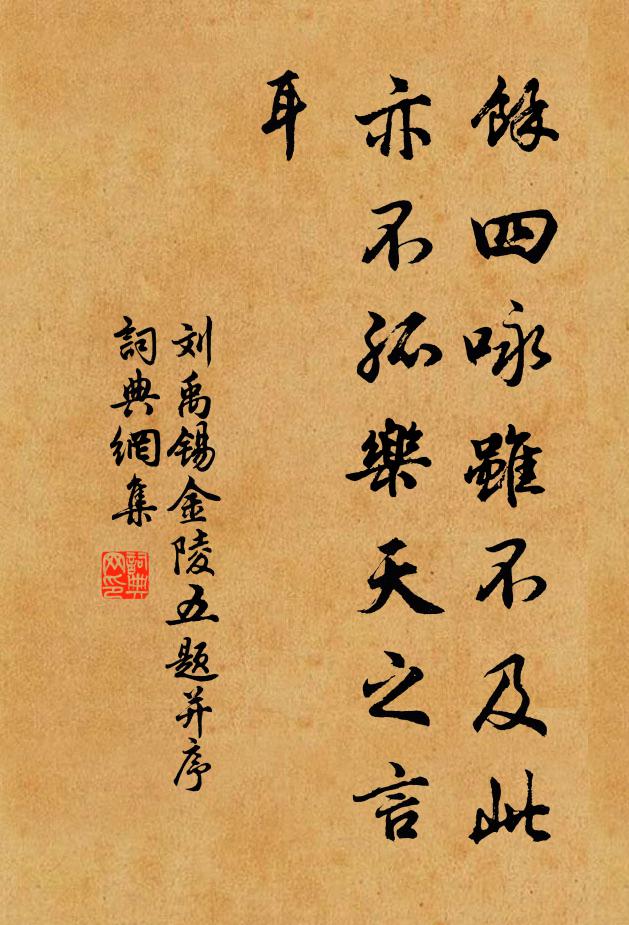 餘四咏雖不及此
亦不孤樂天之言
耳
刘禹锡金陵五题并序
詞典網集
詞典网印